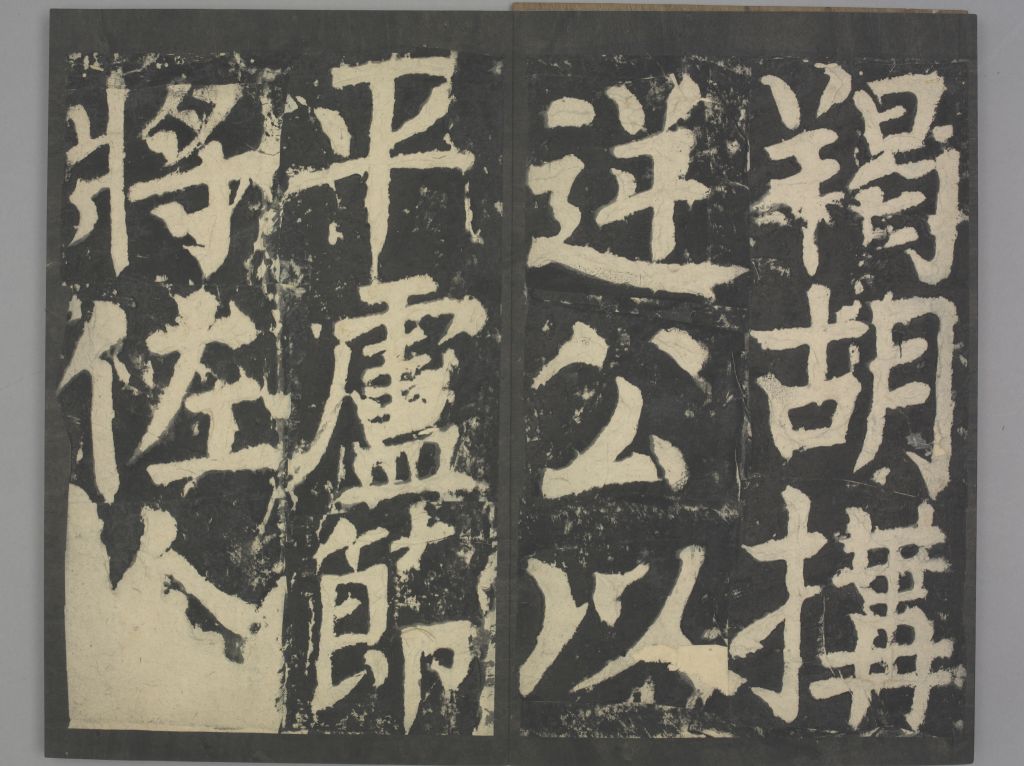 羯胡搆
逆公以
平盧節
將佐